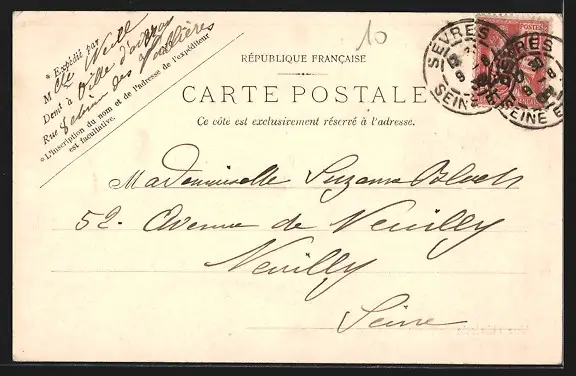 * Expédié par
M
Demt à Ville d'avray
Rue
*L'inscription du nom et de l'adresse de l'expéditeur
est facultative.
10
RÉPUBLIQUE FRANÇAISE
CARTE POSTALE
Ce côté est exclusivement réservé à l'adresse.
SÈVRES
SEINE
SÈVRES
SEINE
POSTES
Mademoiselle Suzanne Bloch
52. Avenue de Neuilly
Neuilly
Seine